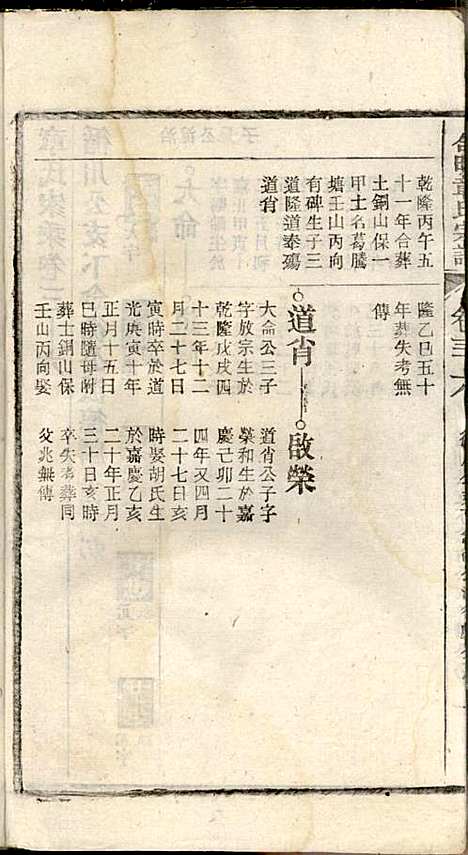 氏宗譜
乾隆丙午五
十一年合葬
土銅山保一
甲土名葛騰
塘壬山丙向
有碑生子三
道隆道泰殤
道肖
隆乙巳五十
年葬失考無
傳
道肖
大侖公三子
字放宗生於
乾隆戊戌四
十三年十二
月二十七日
寅時卒於道
光庚寅十年
正月十五日
巳時隨母附
葬土銅山保
壬山丙向娶
啟榮
道肖公子字
和生於嘉
慶己卯二十
四年又四月
二十七日亥
時娶胡氏生
於嘉慶乙亥
二十年正月
三十日亥時
卒失考葬同
父兆無傳